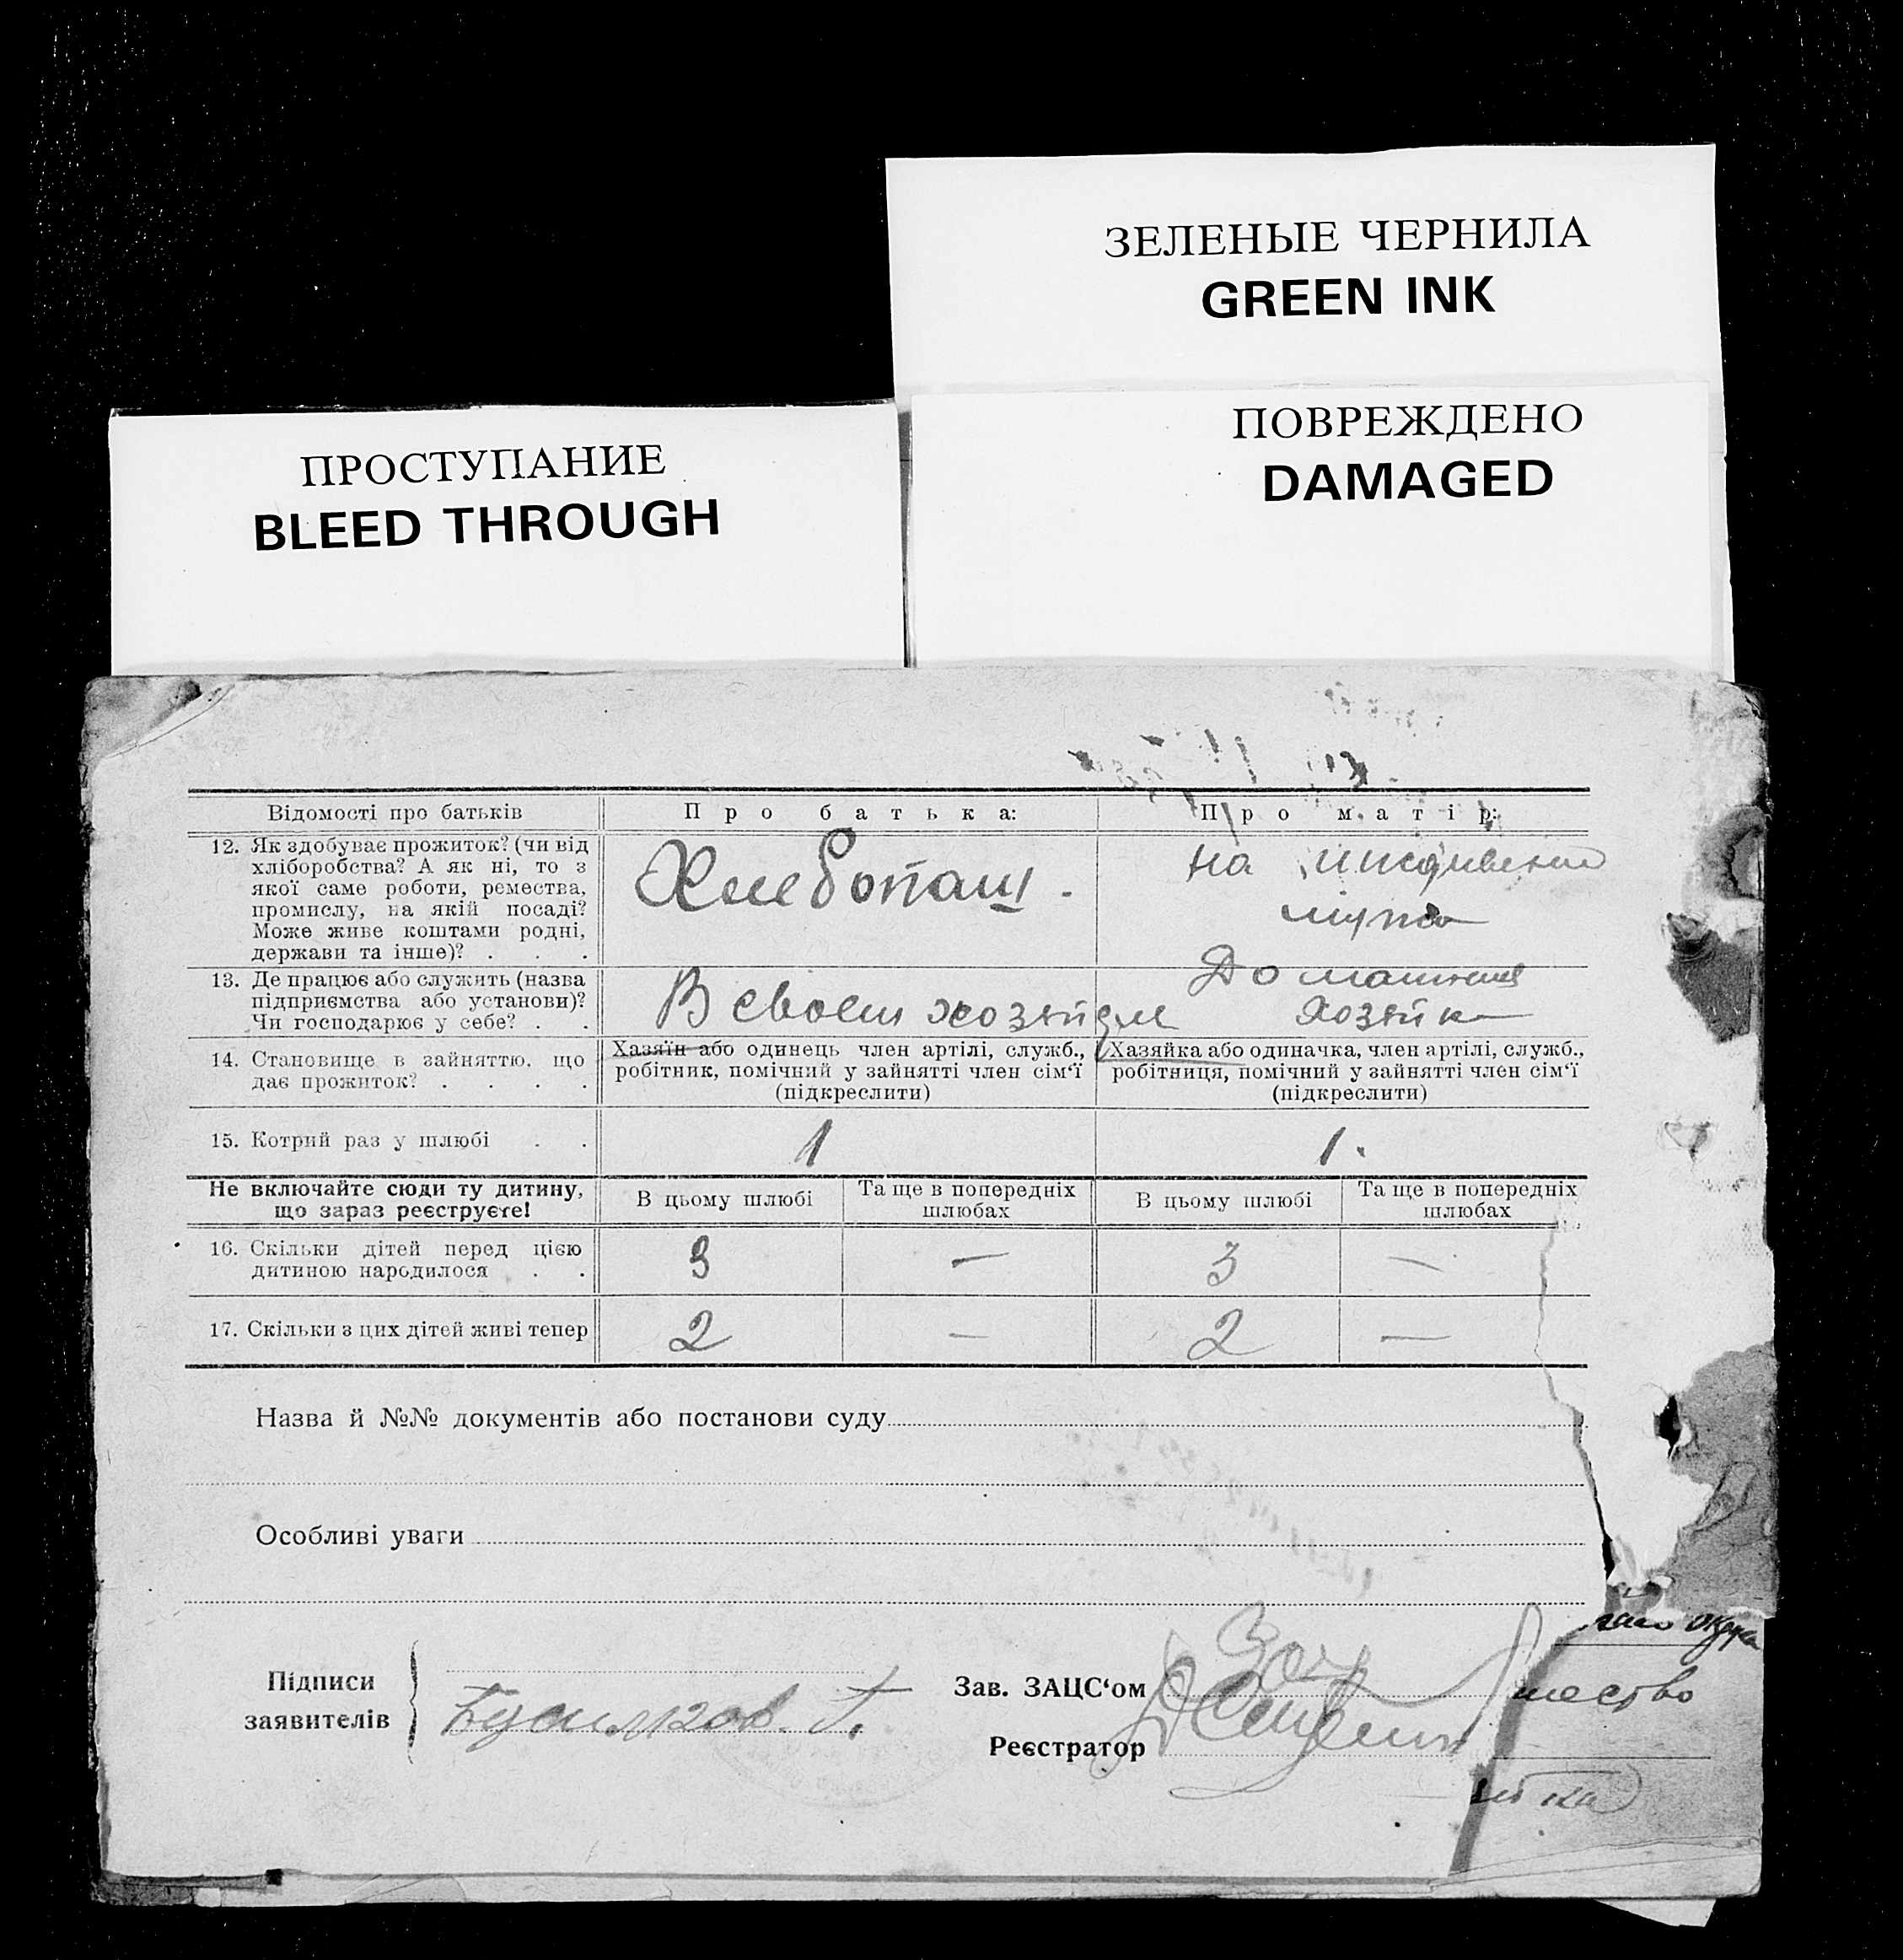 ЗЕЛЕНЫЕ ЧЕРНИЛА
GREEN INK
ПОВРЕЖДЕНО
DAMAGED
ПРОСТУПАНИЕ
BLEED THROUGH
Відомості про батьків
Про батька:
Про матір:
12. Як здобуває прожиток? (чи від
хліборобства? А як ні, то з
якої саме роботи, ремества,
промислу, на якій посаді?
Може живе коштами родні,
держави та інше)? . . .
Хлебопаш.
на иждивении
мужа
13. Де працює або служить (назва
підприємства або установи)?
Чи господарює у себе? . .
В своем хозяйсте
Домашняя
хозяйка
14. Становище в зайняттю, що
дає прожиток? . . . .
Хазяїн або одинець член артілі, служб.,
робітник, помічний у зайнятті член сім‘ї
(підкреслити)
Хазяйка або одиначка, член артілі, служб.,
робітниця, помічний у зайнятті член сім‘ї
(підкреслити)
15. Котрий раз у шлюбі . .
1
1.
Не включайте сюди ту дитину,
що зараз реєструєте!
В цьому шлюбі
Та ще в попередніх
шлюбах
В цьому шлюбі
Та ще в попередніх
шлюбах
16. Скільки дітей перед цією
дитиною народилося . .
3 — 3 —
17. Скільки з цих дітей живі тепер
2 — 2 —
Назва й №№ документів або постанови суду
Особливі уваги
Підписи
заявителів
Зав. ЗАЦС‘ом
Реєстратор